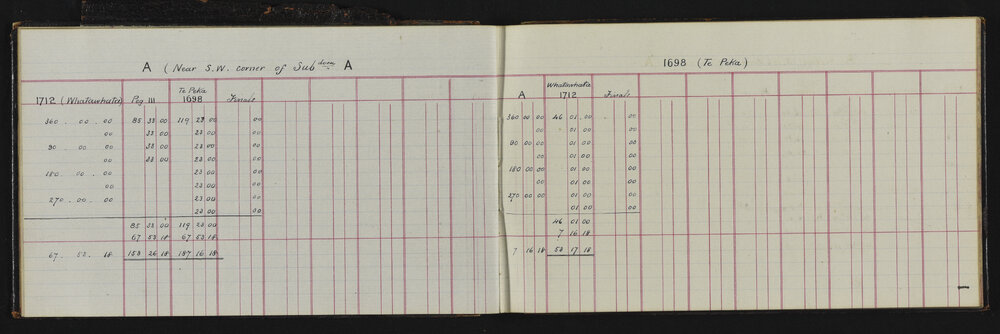 A (Near S.W. corner of Subdivn A
Te Peka
1712 (Whatawhata) Peg III 1698 Finals
360 . 00 . 00 85 53 00 119 23 00 00
00 53 00 23 00 00
90 00 00 53 00 23 00 00
00 53 00 23 00 00
180 . 00 . 00 23 00 00
00 23 00 00
270 . 00 . 00 23 00 00
23 00 00
85 53 00 119 23 00
67 53 18 67 53 18
67 . 53 . 18 153 26 18 187 16 18
1698 (Te Peka)
Whatawhata
A 1712 Finals
360 00 00 46 01 00 00
00 01 00 00
90 00 00 01 00 00
00 01 00 00
180 00 00 01 00 00
00 01 00 00
270 00 00 01 00 00
01 00 00
46 01 00
7 16 18
7 16 18 53 17 18